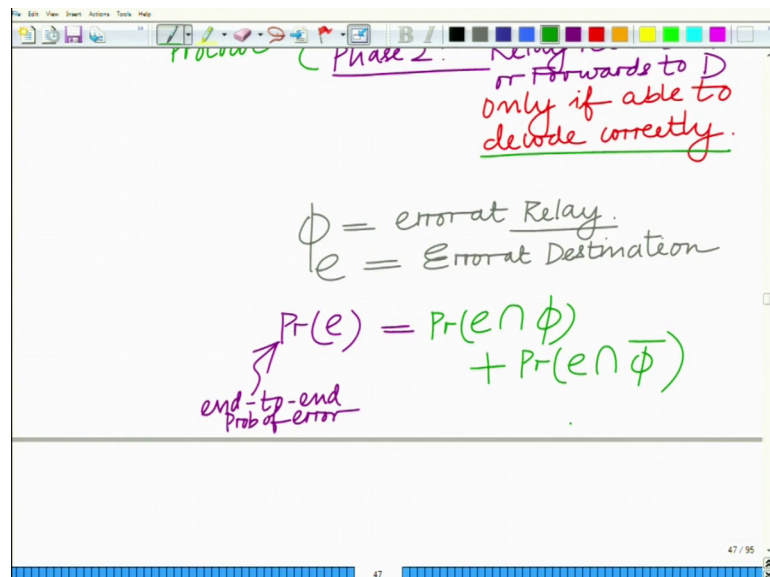 File Edit View Insert Actions Tools Help
Protocol ( Phase 2: Relay
or Forwards to D
only if able to
decode correctly.
ϕ = error at Relay.
e = Error at Destination
Pr(e) = Pr(e ∩ ϕ)
+ Pr(e ∩ ϕ̅)
end-to-end
Prob of error
47 / 95
47